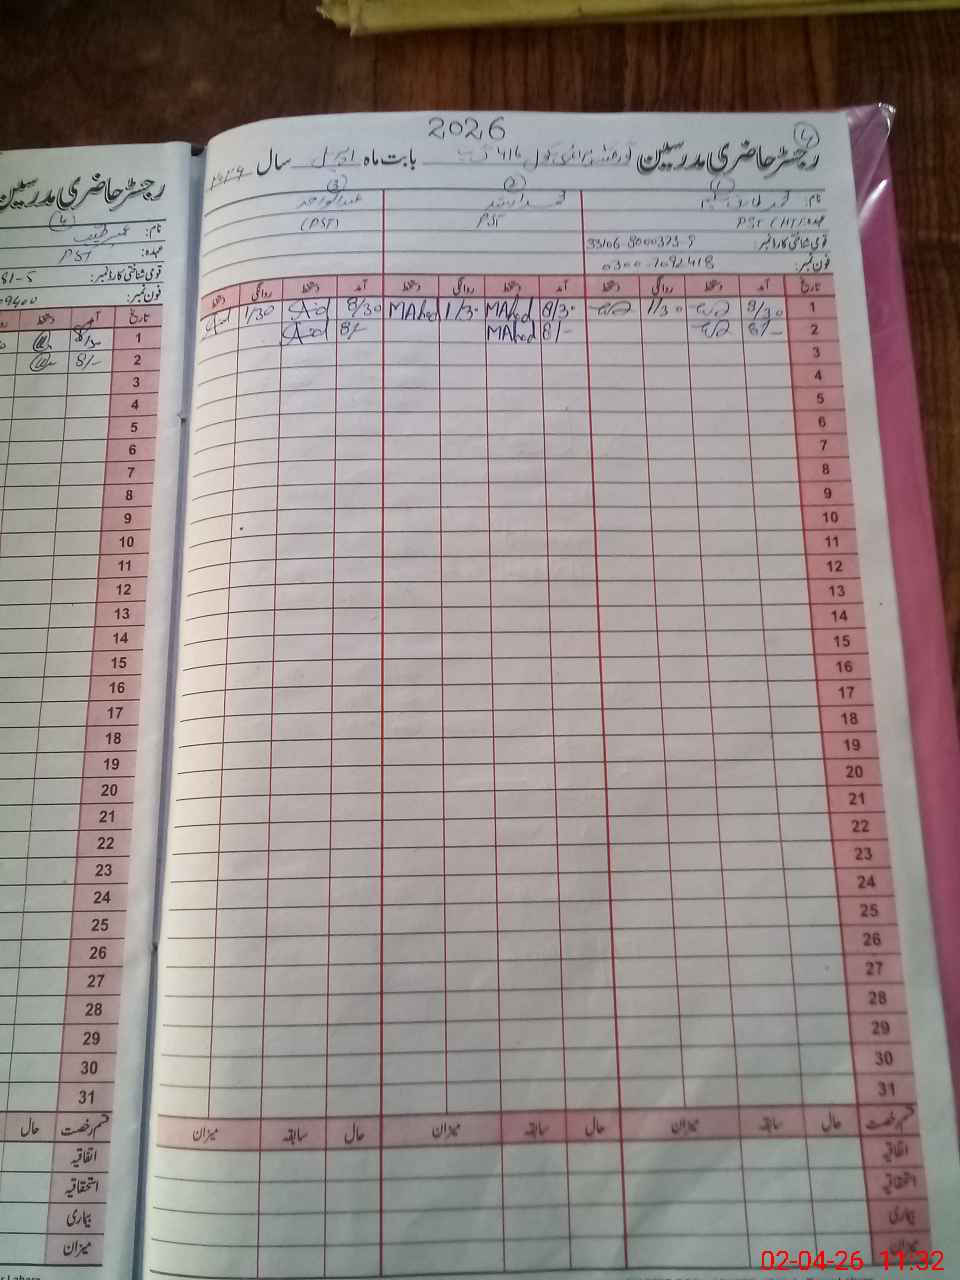 2026
رجسٹر حاضری مدرسین گورنمنٹ پرائمری سکول 416 گ ب بابت ماہ اپریل سال
نام: (1) محمد طارق (2) محمد ارشد (3) عبدالواحد
عہدہ: PST (HT) PST (PST)
قومی شناختی کارڈ نمبر: 33106-8000373-9
فون نمبر: 0300-7092418
تاریخ آمد دستخط روانگی دستخط آمد دستخط روانگی دستخط آمد دستخط روانگی دستخط
1 8/30 1/30 8/30 MAhed 1/30 MAhed 8/30 1/30
2 8/- 8/- MAhed 8/-
3
4
5
6
7
8
9
10
11
12
13
14
15
16
17
18
19
20
21
22
23
24
25
26
27
28
29
30
31
قسم رخصت حال سابقہ میزان حال سابقہ میزان حال سابقہ میزان
اتفاقیہ
استحقاقیہ
بیماری
میزان
رجسٹر حاضری مدرسین
(4)
نام:
عہدہ: PST
قومی شناختی کارڈ نمبر: 81-5
فون نمبر: 09400
تاریخ آمد دستخط
1 8/30
2 8/-
3
4
5
6
7
8
9
10
11
12
13
14
15
16
17
18
19
20
21
22
23
24
25
26
27
28
29
30
31
قسم رخصت حال
اتفاقیہ
استحقاقیہ
بیماری
میزان
02-04-26 11:32